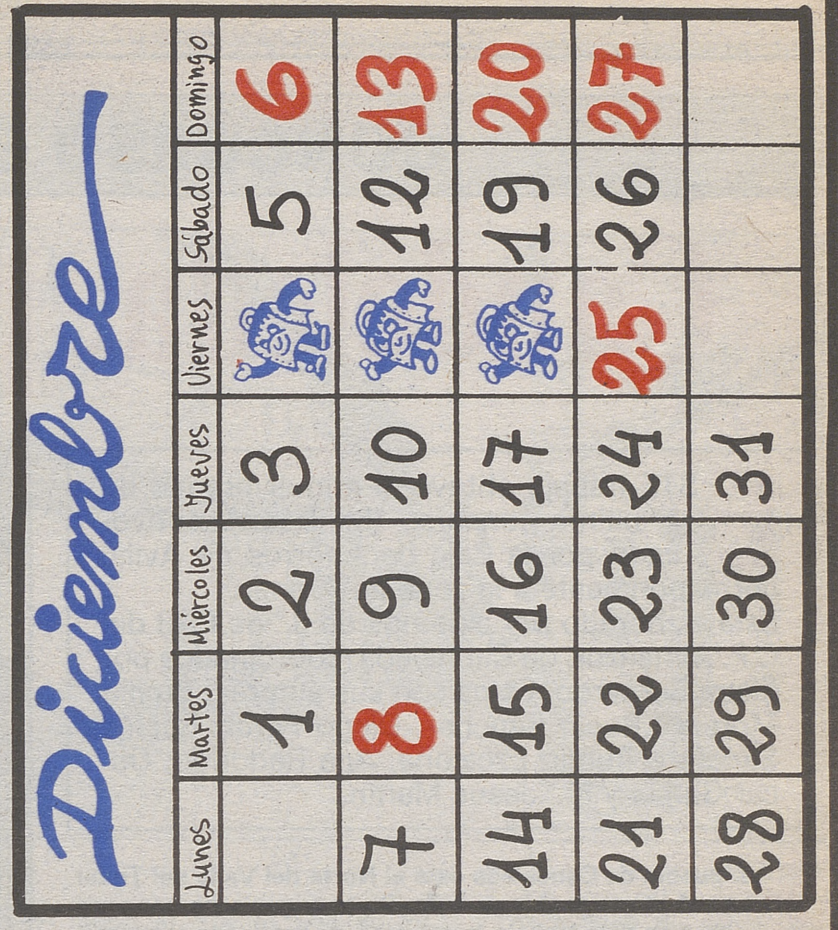 Diciembre
Lunes Martes Miércoles Jueves Viernes Sábado Domingo
1 2 3 5 6
7 8 9 10 12 13
14 15 16 17 19 20
21 22 23 24 25 26 27
28 29 30 31